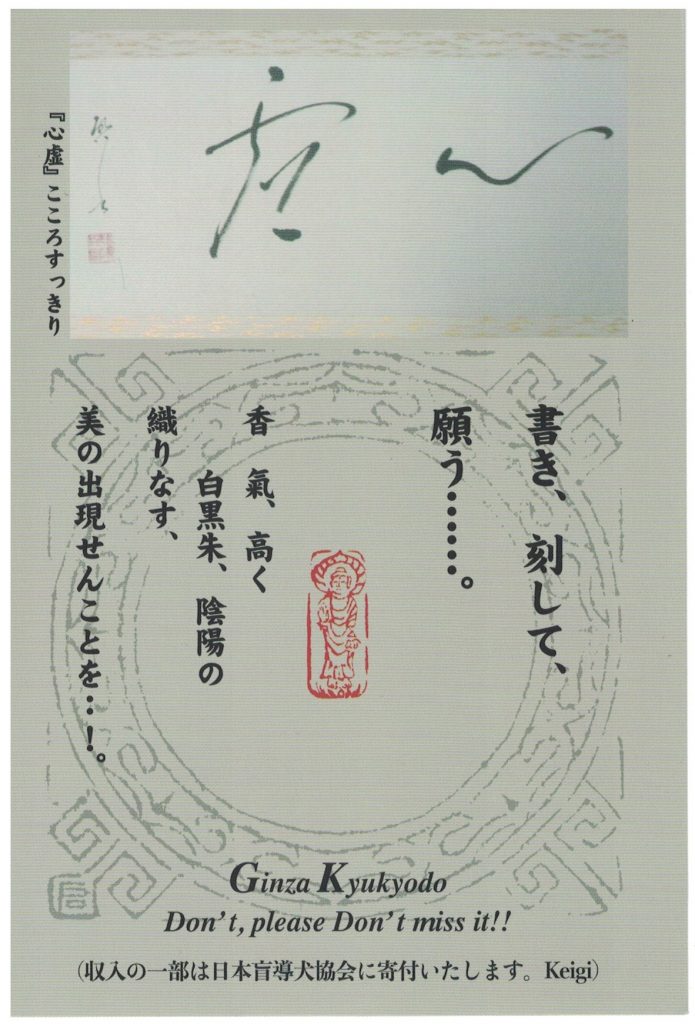 心虚
『心虚』こころすっきり
書き、刻して、
願う……。
香氣、高く
白黒朱、陰陽の
織りなす、
美の出現せんことを…！。
Ginza Kyukyodo
Don't, please Don't miss it!!
（収入の一部は日本盲導犬協会に寄付いたします。Keigi）